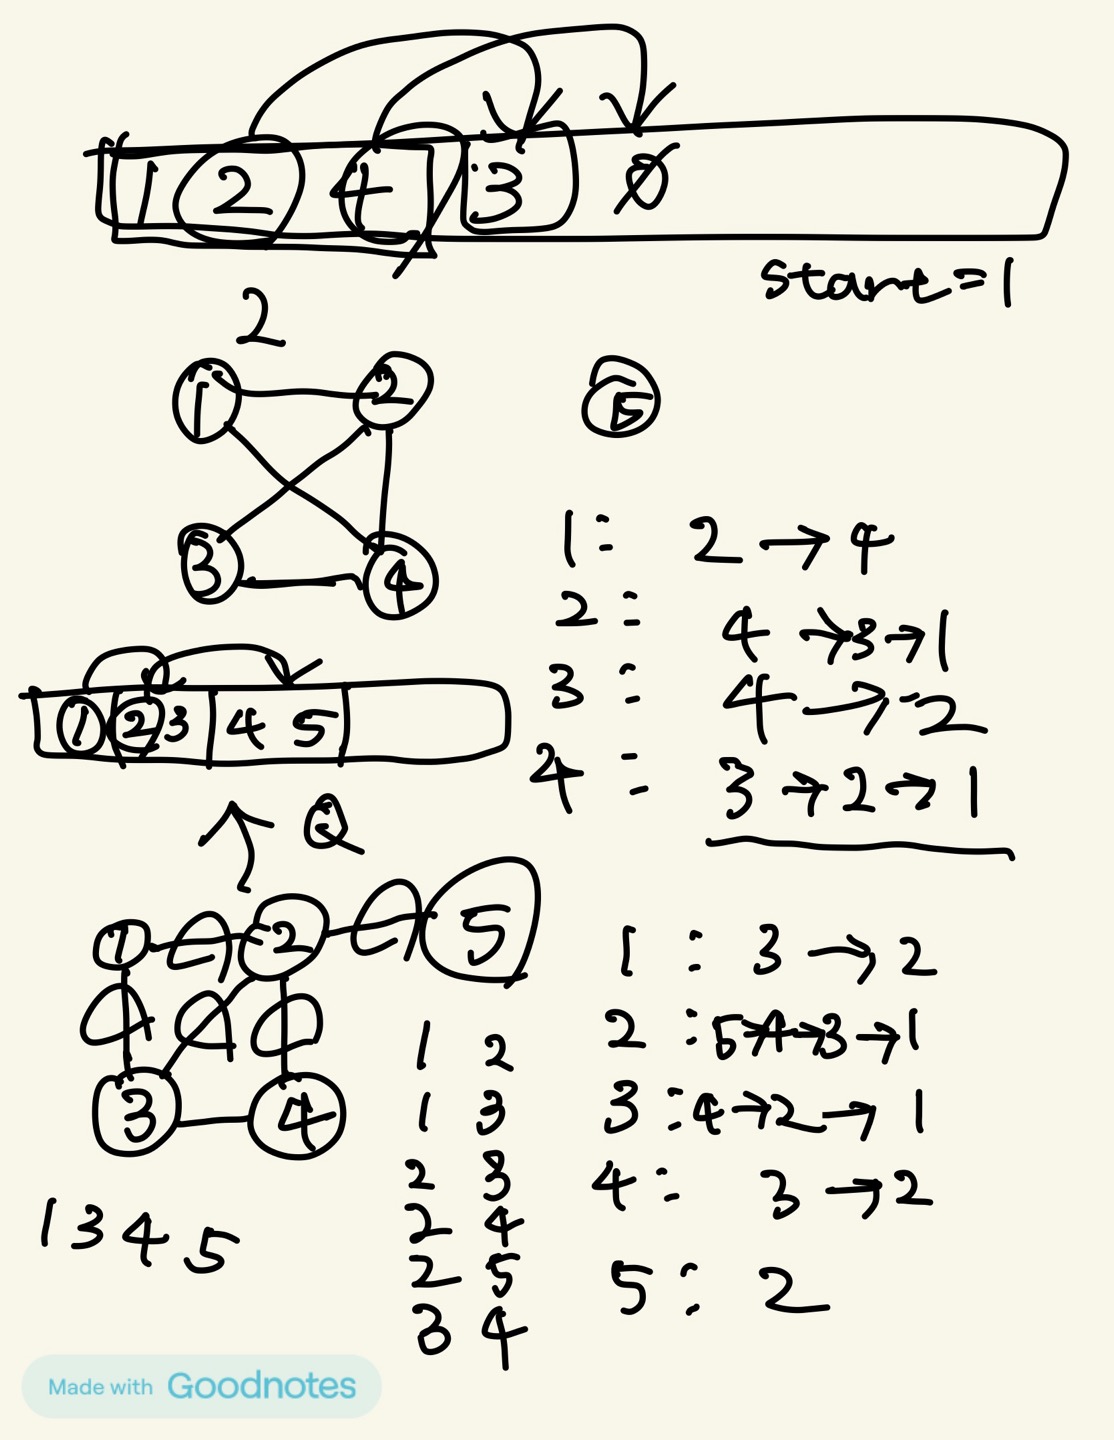 1 2 4 3 0
start=1
2
1 2
5
3 4
1: 2 → 4
2: 4 → 3 → 1
3: 4 → 2
4: 3 → 2 → 1
1 2 3 4 5
Q
1 2 5
3 4
1 3 4 5
1 2
1 3
2 3
2 4
2 5
3 4
1: 3 → 2
2: 5 → 4 → 3 → 1
3: 4 → 2 → 1
4: 3 → 2
5: 2
Made with Goodnotes